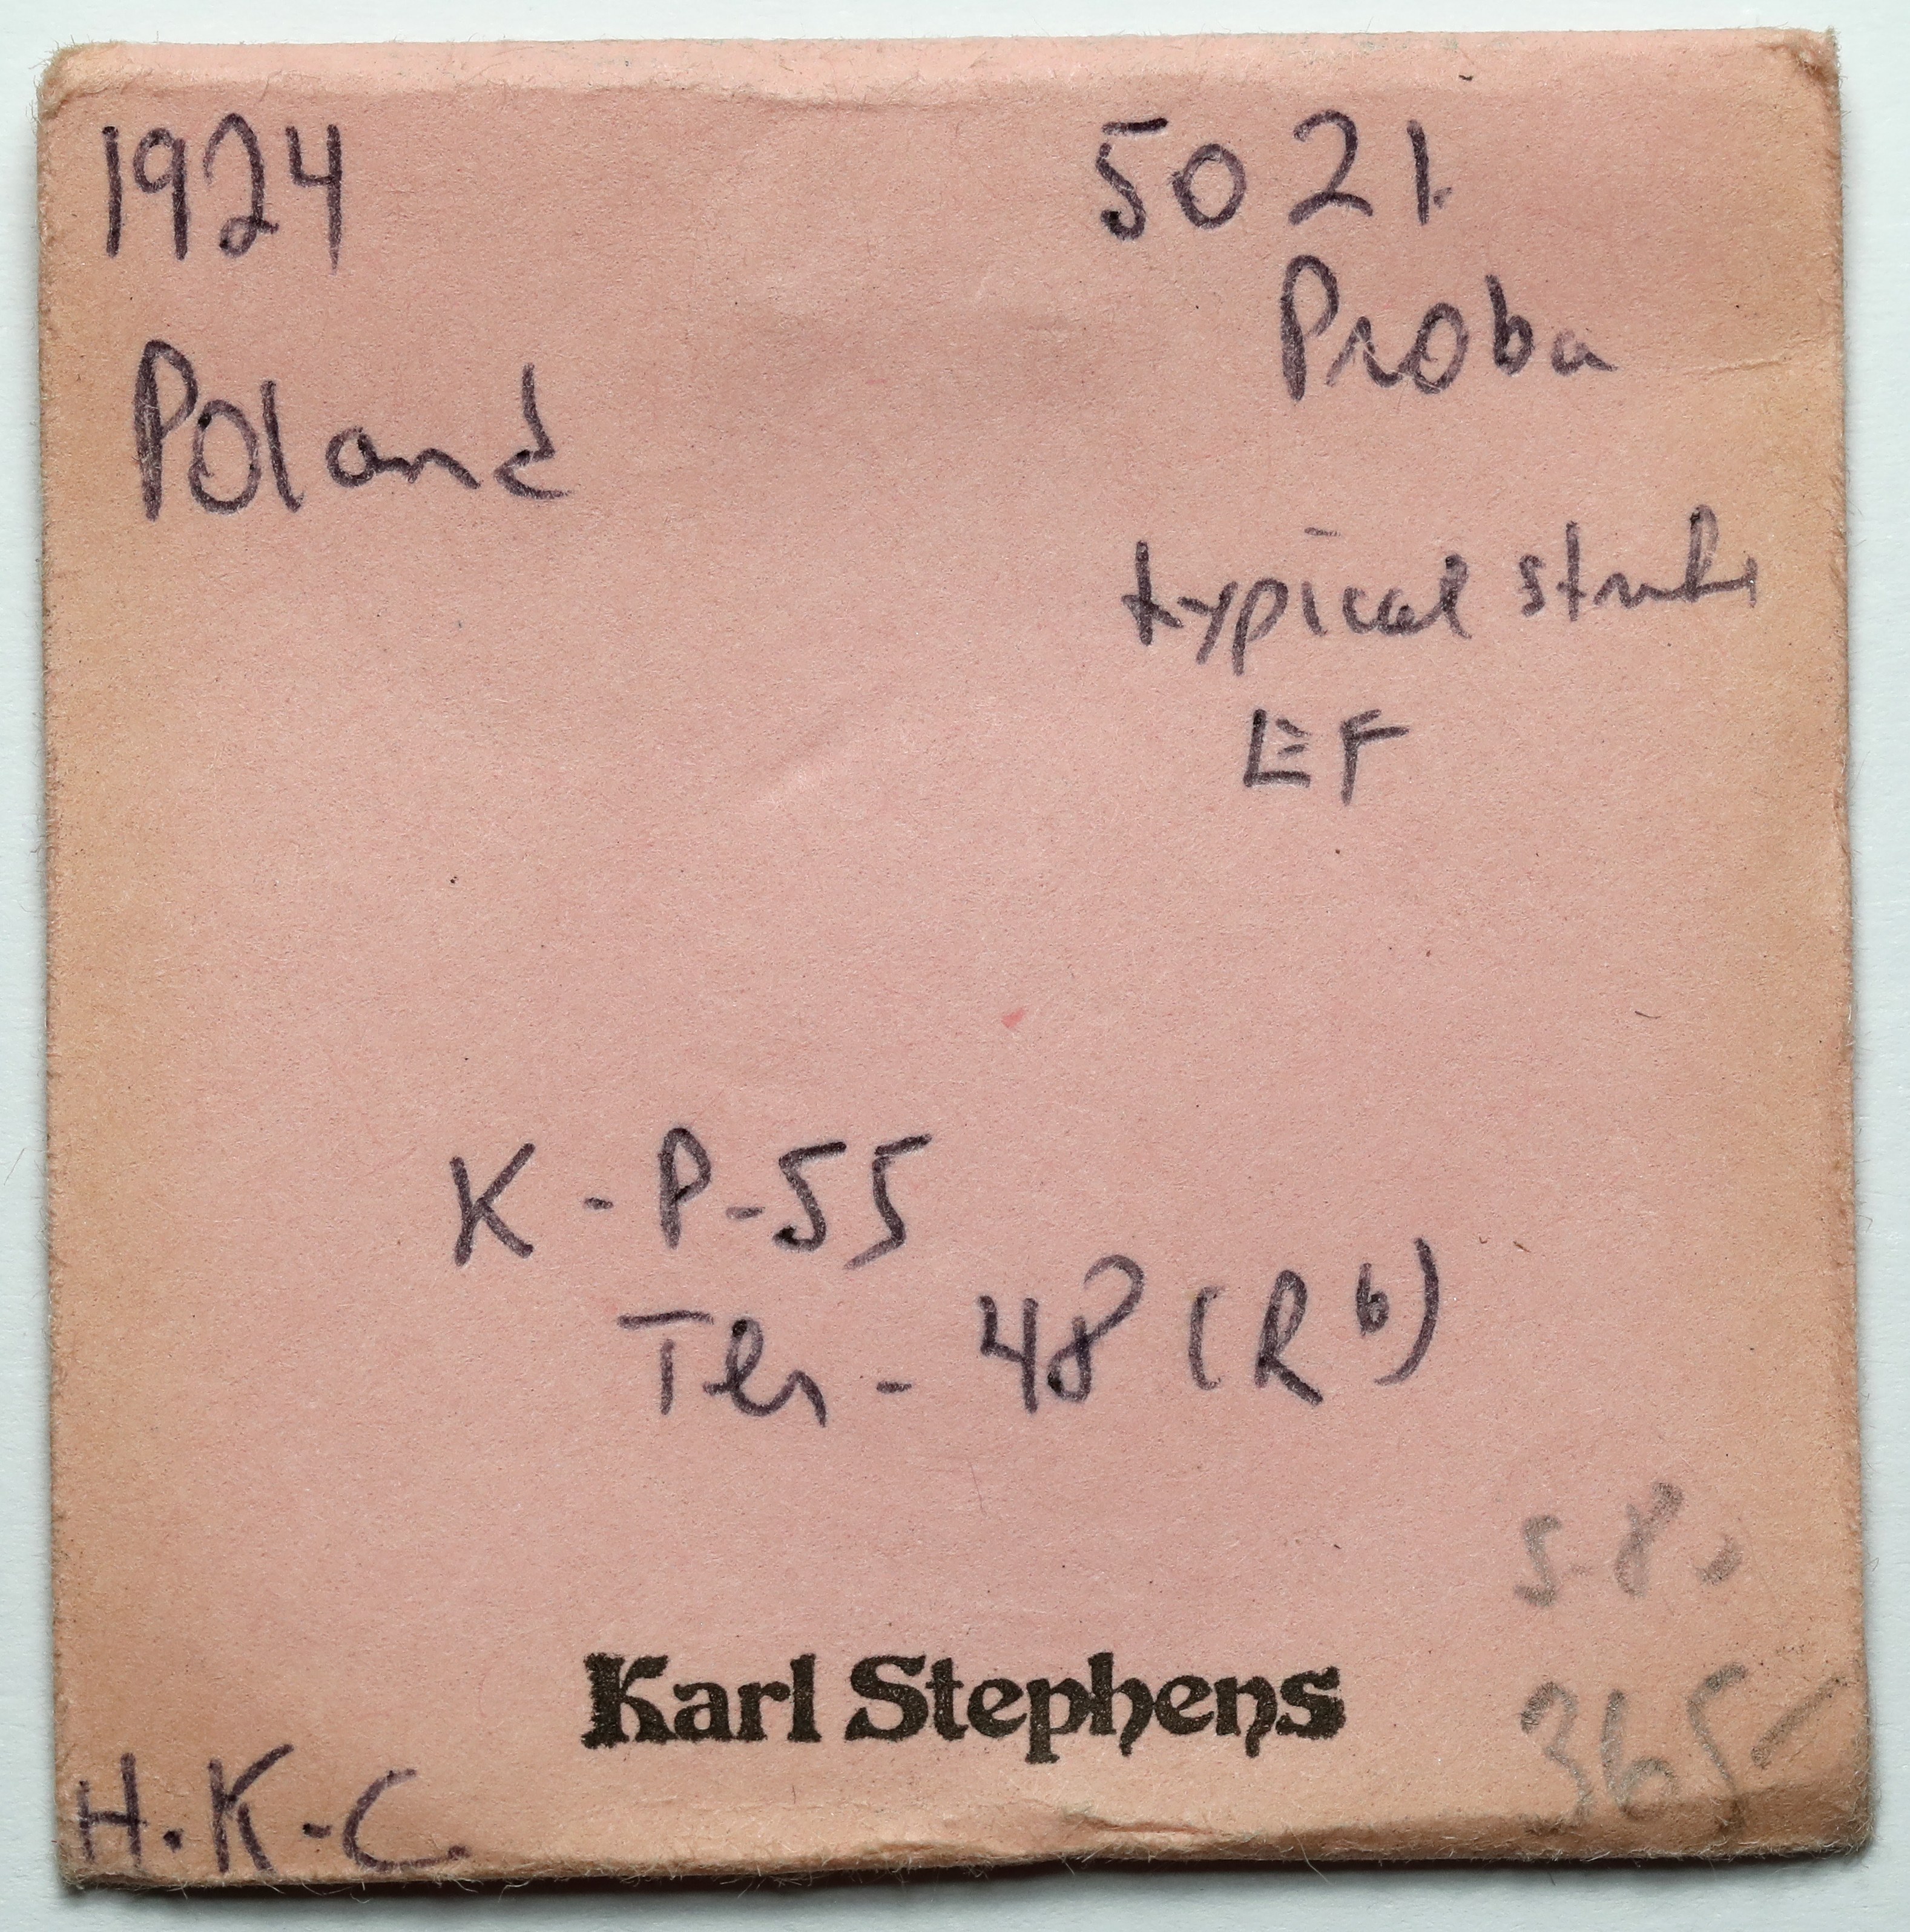 1924 50 Zł.
Proba
Poland
typical strike
EF
K-P-55
Ter-48 (R6)
5-8
365-
Karl Stephens
H.K.C.